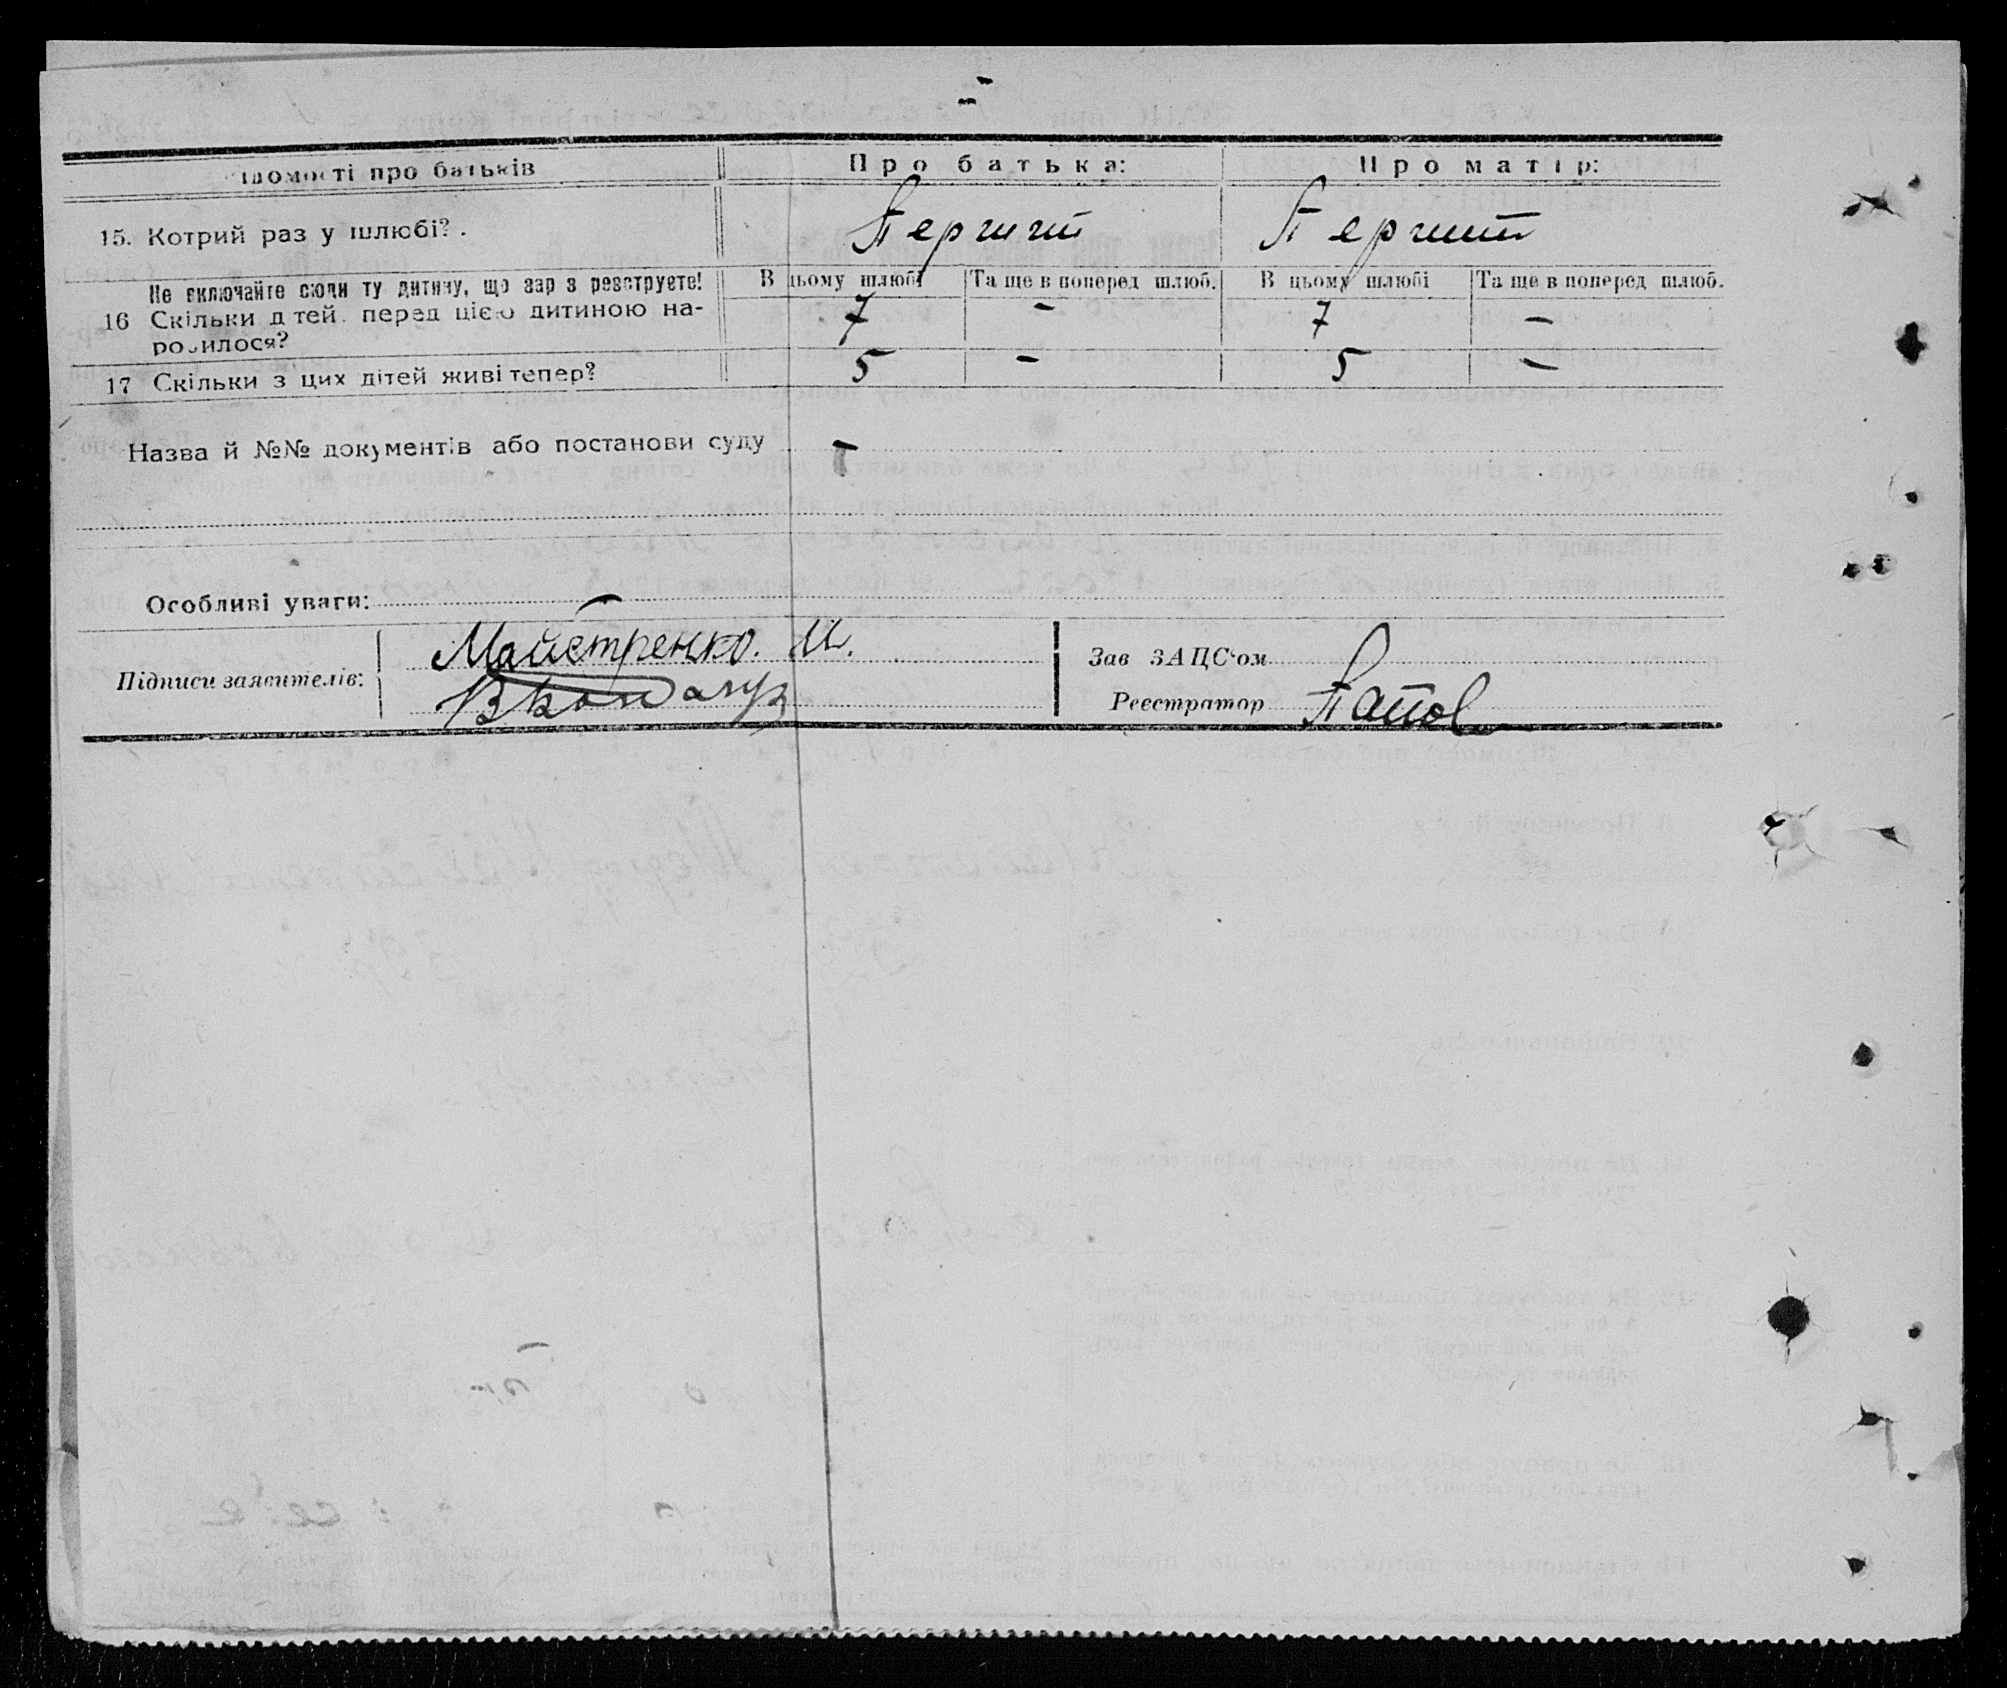 Відомості про батьків Про батька: Про матір:
15. Котрий раз у шлюбі? . Перший Перший
Не включайте сюди ту дитину, що зараз реєструєте! В цьому шлюбі Та ще в поперед шлюб. В цьому шлюбі Та ще в поперед шлюб.
16 Скільки дітей перед цією дитиною на- 7 – 7 –
родилося?
17 Скільки з цих дітей живі тепер? 5 – 5 –
Назва й №№ документів або постанови суду –
Особливі уваги: –
Підписи заявителів: Майстренко. М.
Зав ЗАЦС‘ом
Реєстратор